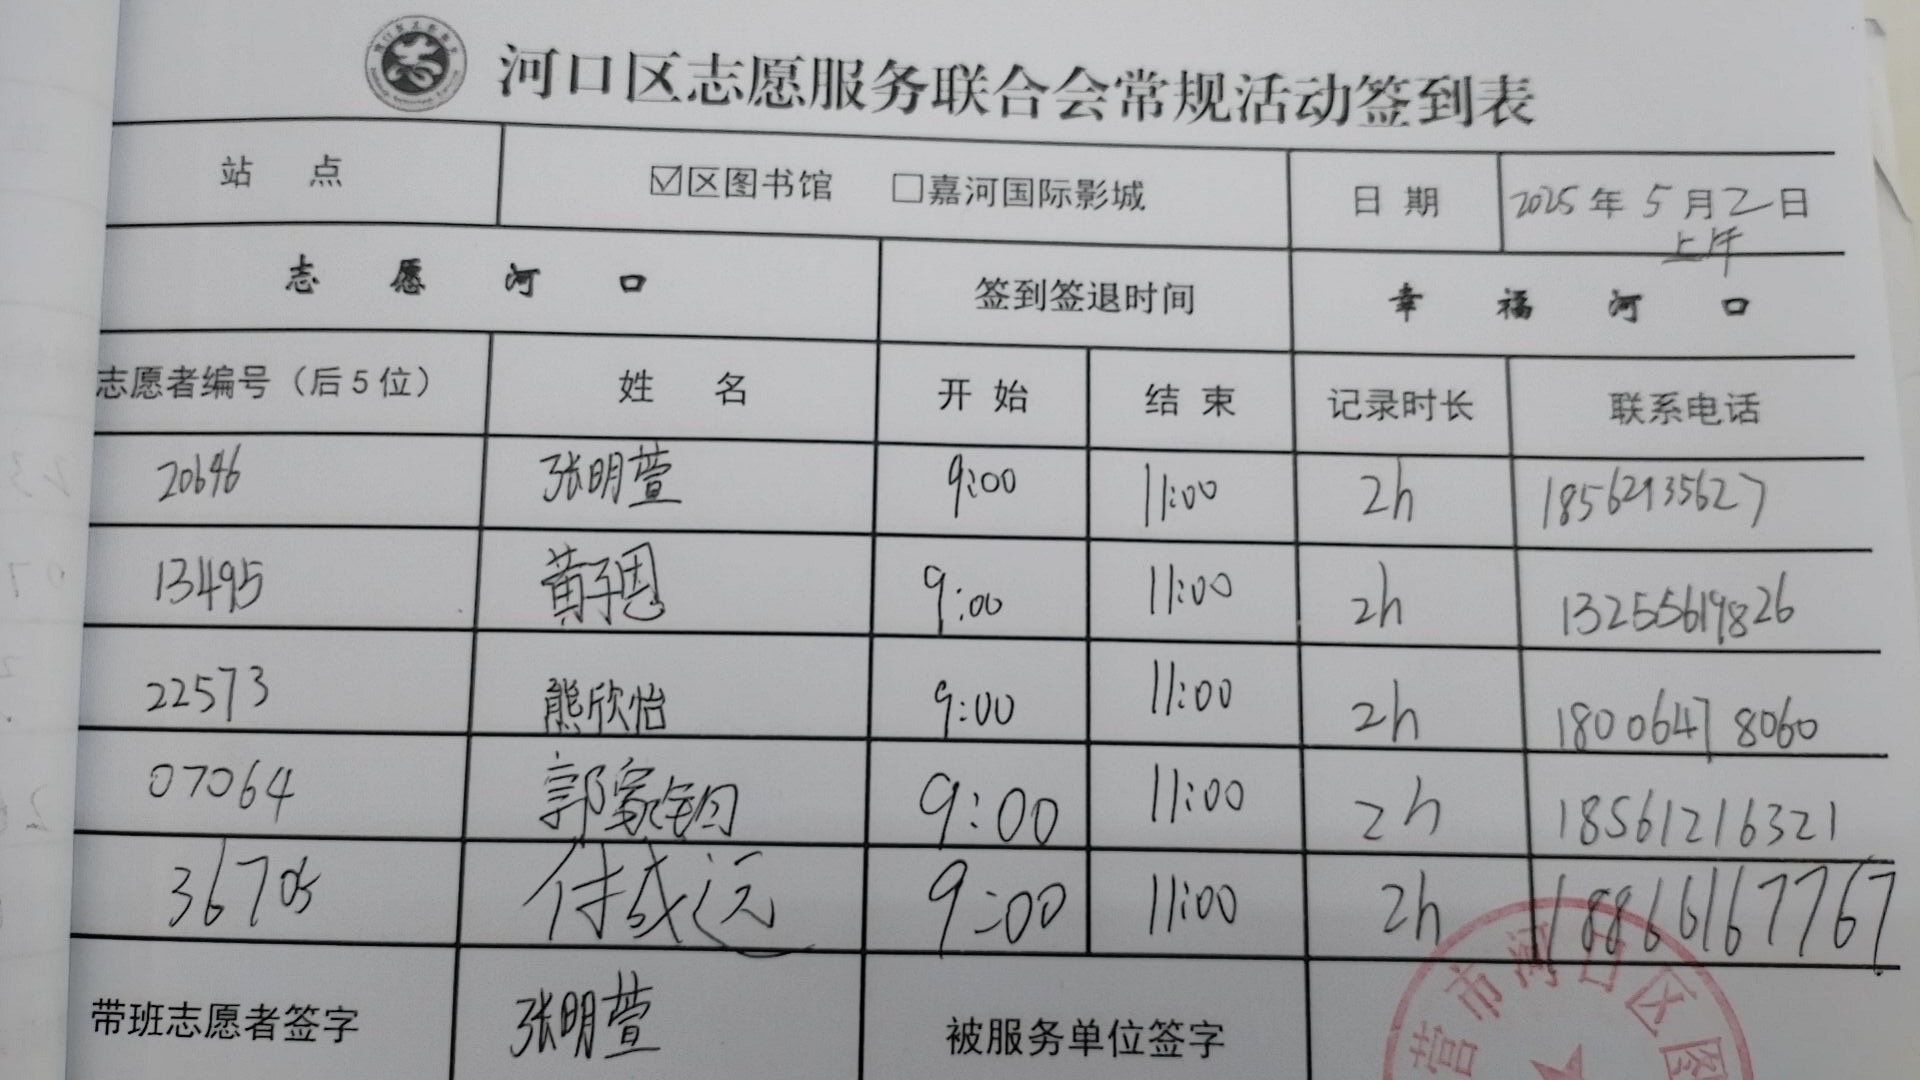 河口区志愿服务联合会常规活动签到表
站 点 ☑区图书馆 □嘉河国际影城 日 期 2025年5月2日
上午
志 愿 河 口 签到签退时间 幸 福 河 口
志愿者编号（后5位） 姓 名 开 始 结 束 记录时长 联系电话
20646 张明萱 9:00 11:00 2h 18562935627
13495 黄子恩 9:00 11:00 2h 13255619826
22573 熊欣怡 9:00 11:00 2h 18006478060
07064 郭家铭 9:00 11:00 2h 18561216321
36705 付成远 9:00 11:00 2h 18866167767
带班志愿者签字 张明萱 被服务单位签字
营市河口区图